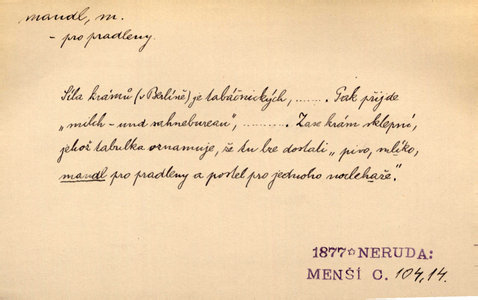 mandl, m.
- pro pradleny.
Síla krámů (v Berlíně) je tabáčnických, ....... Pak přijde
„milch- und rahnebureau", ........... Zase krám sklepní,
jehož tabulka oznamuje, že tu lze dostati „pivo, mlíko,
mandl pro pradleny a postel pro jednoho nocleháře".
1877 NERUDA:
MENŠÍ C. 104,14.